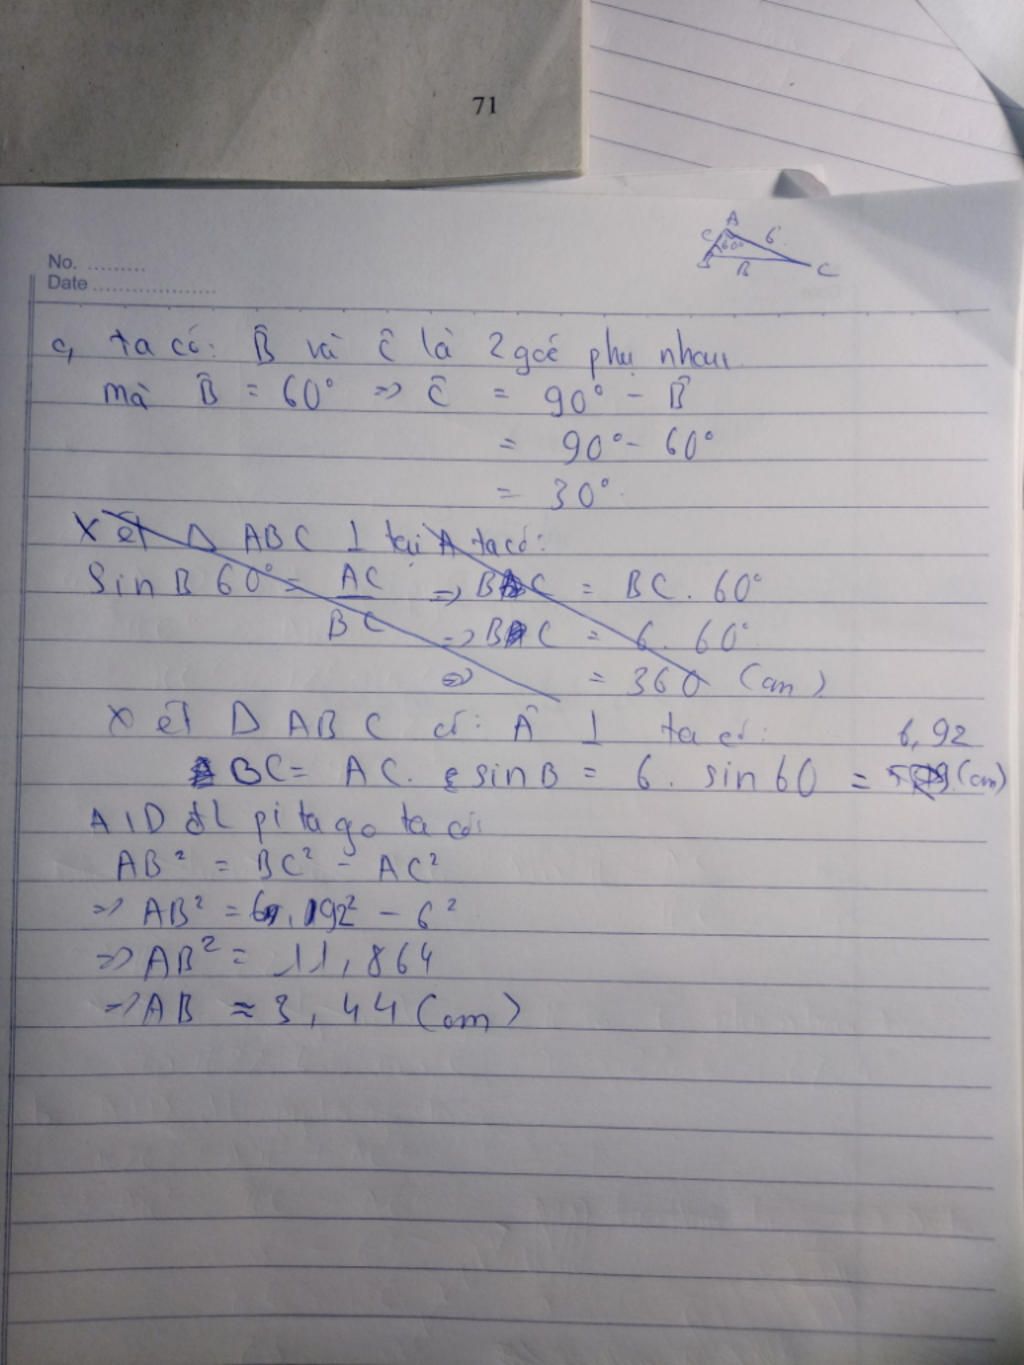 71
A
C 60° 6
B B C
No. .........
Date ...................
c, ta có: B̂ và Ĉ là 2 goé phụ nhau
mà B̂ = 60° => Ĉ = 90° - B̂
= 90° - 60°
= 30°.
Xét Δ ABC ⊥ tại A ta có:
Sin B 60° = AC / BC => BC = BC . 60°
=> BC = 6 . 60°
=> = 360 (cm)
Xét Δ ABC có: Â ⊥ ta có:
6,92
BC = AC . sin B = 6 . sin 60 = (cm)
A1D đL pi ta go ta có:
AB² = BC² - AC²
=> AB² = 6,92² - 6²
=> AB² = 11,864
=> AB ≈ 3,44 (cm)